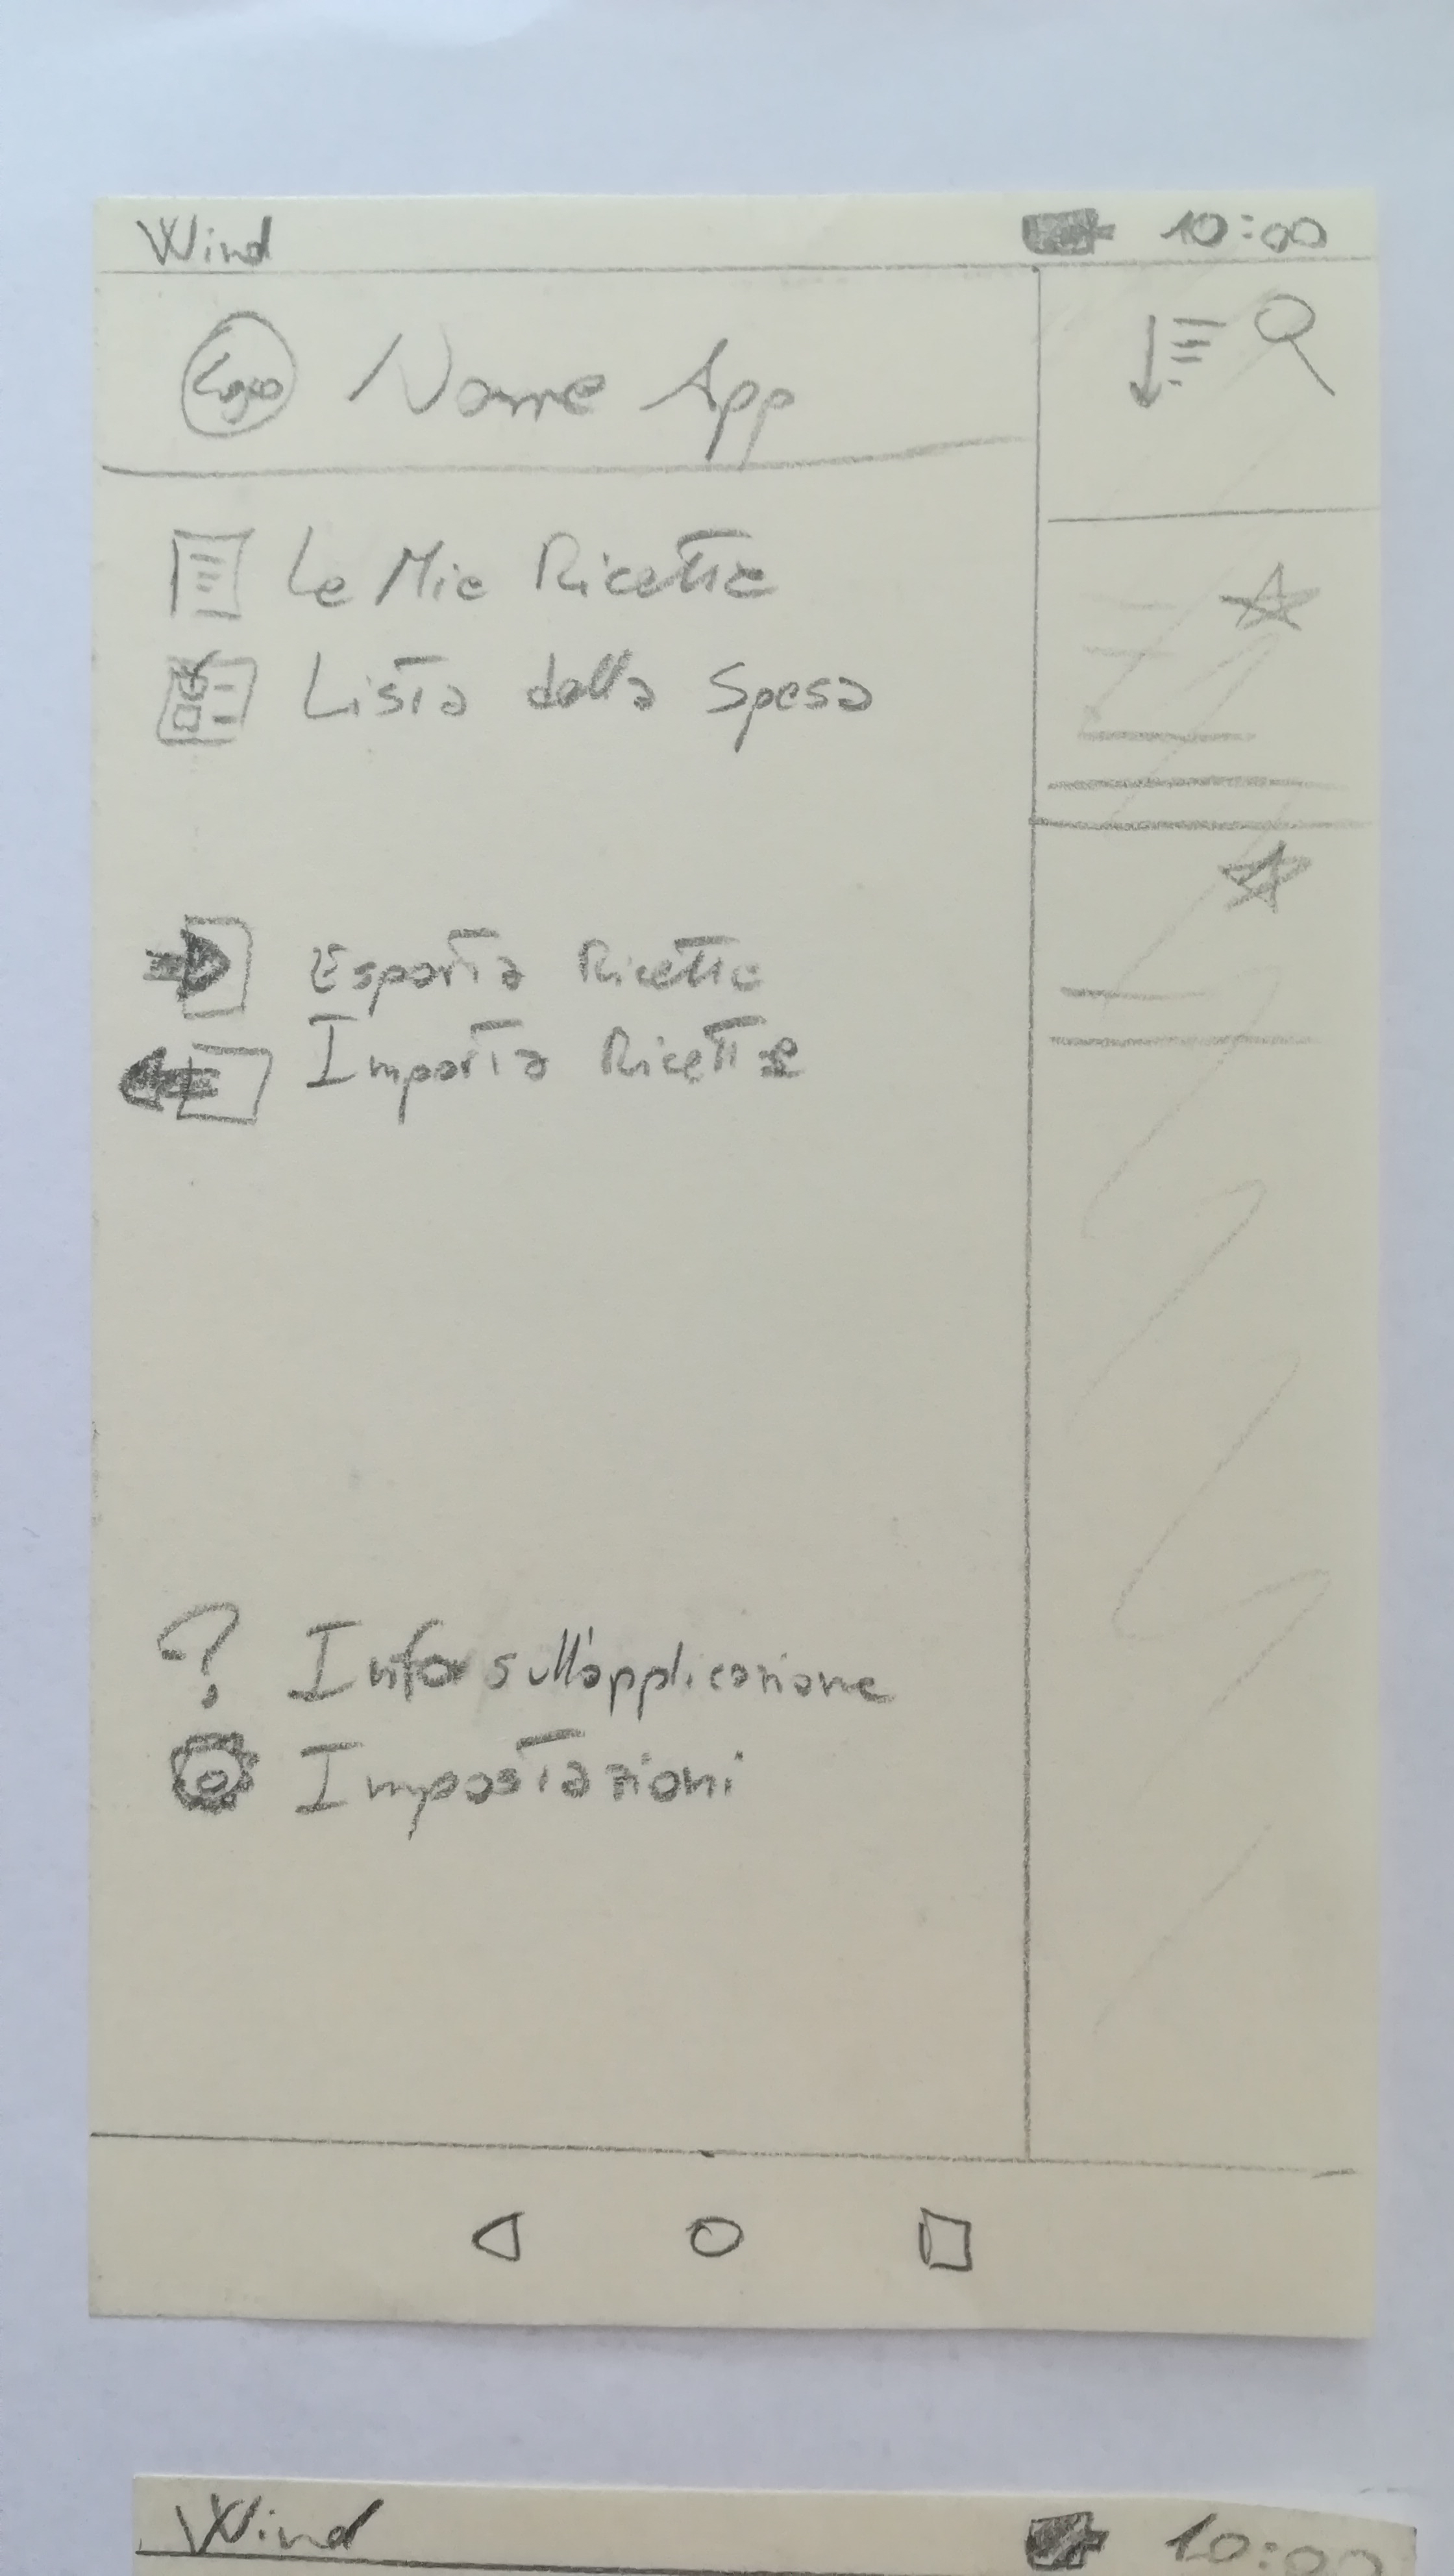 Wind 10:00
Logo Nome App
Le Mie Ricette
Lista della Spesa
Esporta Ricette
Importa Ricette
? Info sull'applicazione
Impostazioni
Wind 10:00